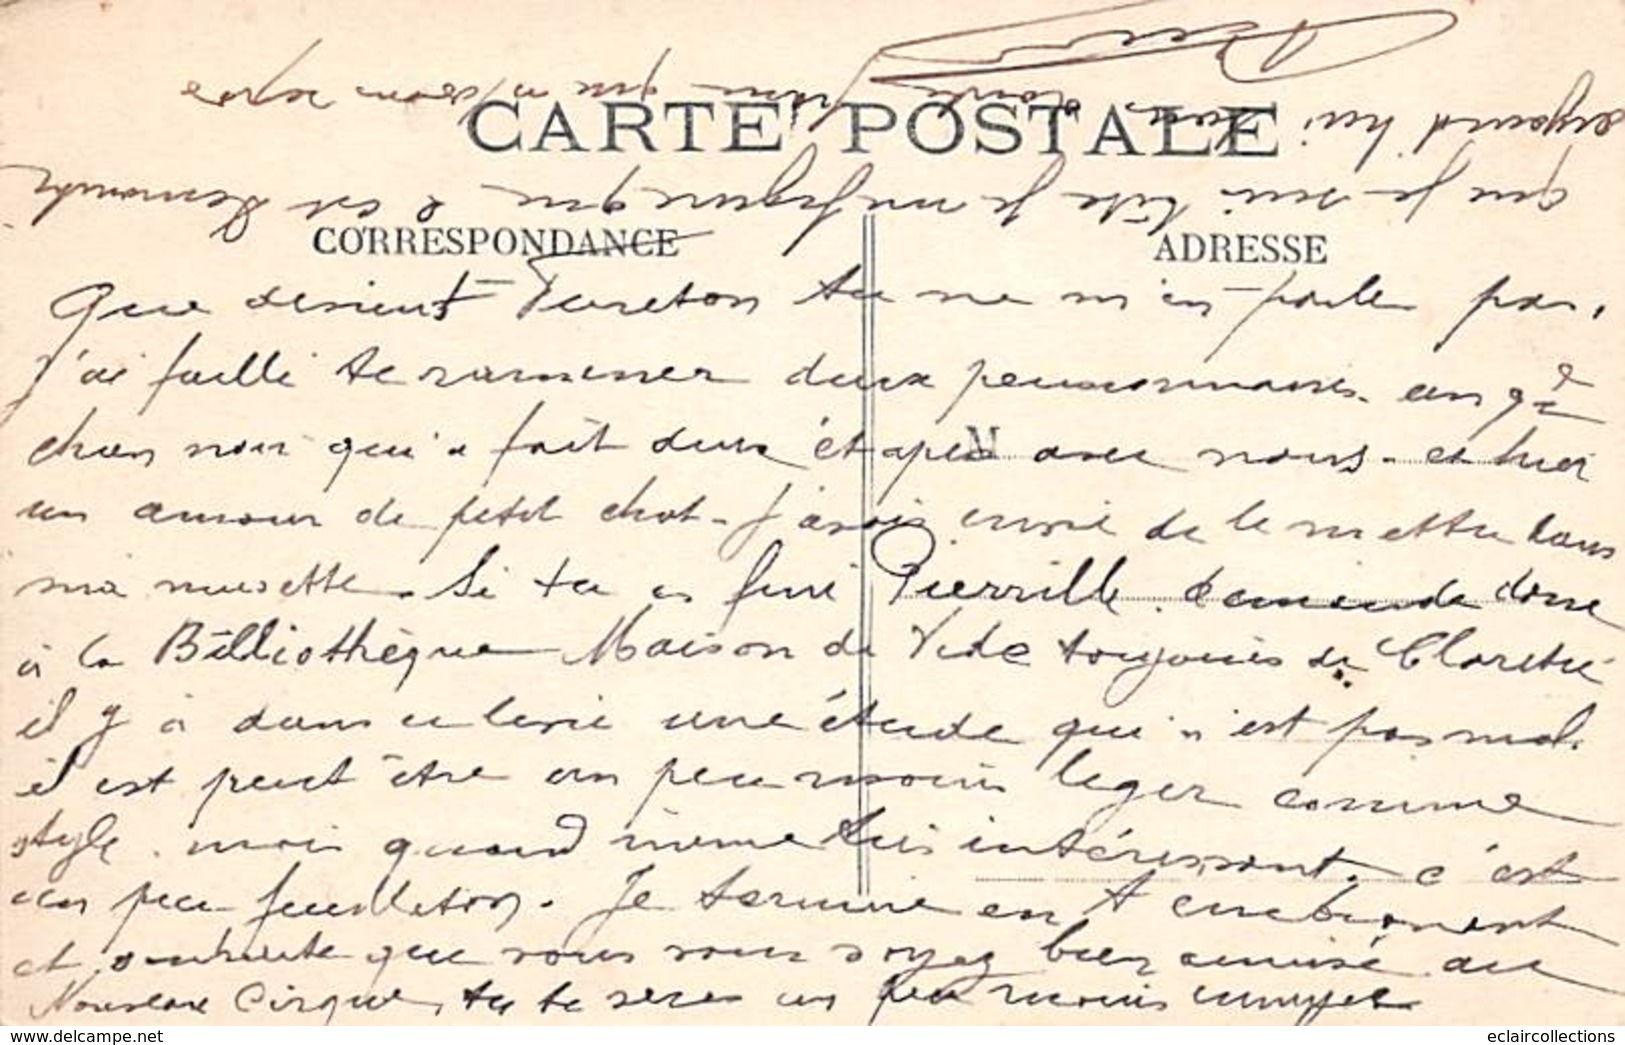 CARTE POSTALE
CORRESPONDANCE
ADRESSE
M
Que devient Fureton tu ne m'en parle pas,
j'ai failli te ramener deux pensionnaires. un gd
chien noir qui a fait deux étapes avec nous. et hier
un amour de petit chat. j'avais envie de le mettre dans
ma musette. Si tu as fini Pierrille. demande donc
à la Bibliothèque Maison de Vide toujours de Claretie
il y a dans ce livre une étude qui n'est pas mal.
il est peut être un peu moins leger comme
style. mais quand même très intéressant. c'est
un peu feuilleton. Je termine en t'embrassant
et souhaite que vous vous soyez bien amusé au
Nouveau Cirque, tu te seras un peu moins ennuyée.
que je suis bête je me figure que c'est Dimanche
aujourd'hui
eclaircollections